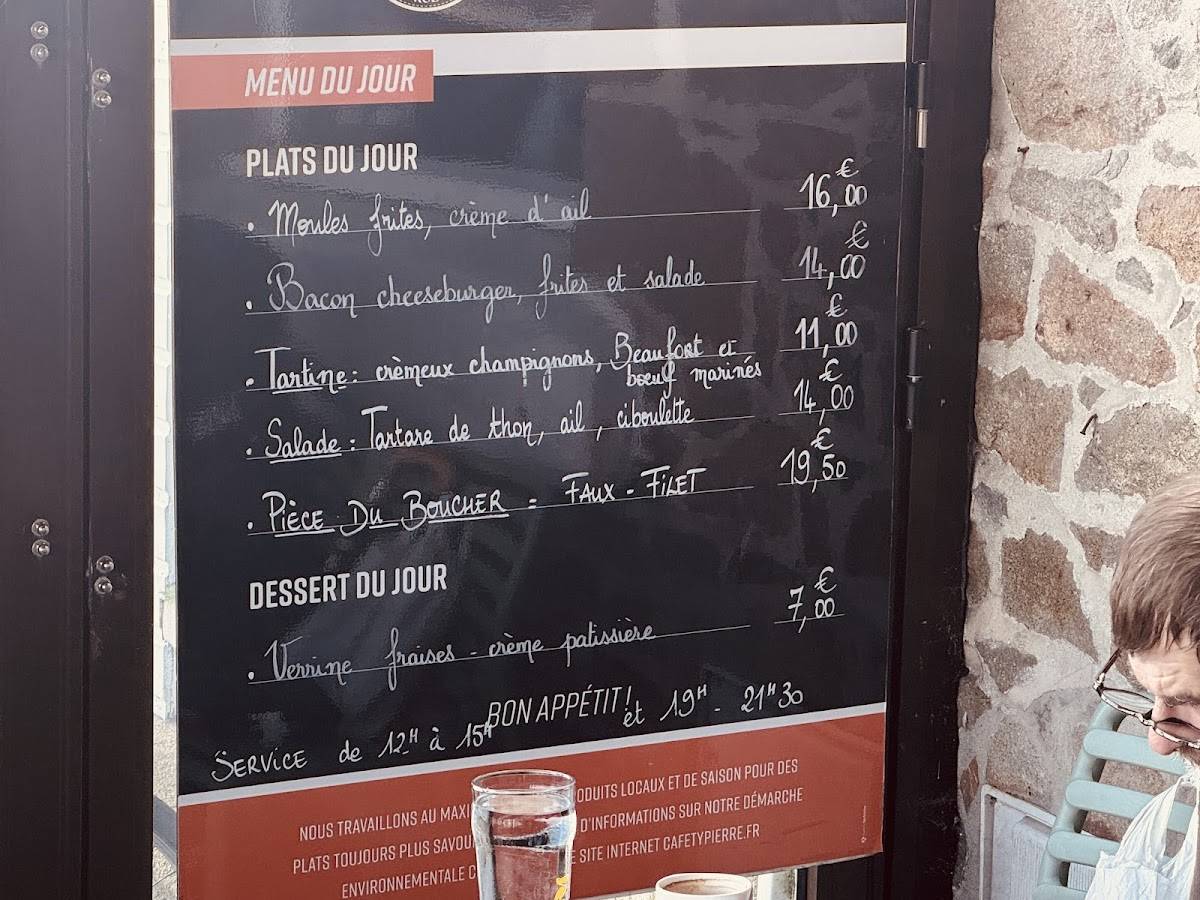 MENU DU JOUR
PLATS DU JOUR
• Moules frites, crème d'ail 16,00 €
• Bacon cheeseburger, frites et salade 14,00 €
• Tartine : crèmeux champignons, Beaufort et 11,00 €
boeuf marinés
• Salade : Tartare de thon, ail, ciboulette 14,00 €
• PIÈCE DU BOUCHER = FAUX-FILET 19,50 €
DESSERT DU JOUR
• Verrine fraises - crème patissière 7,00 €
BON APPÉTIT !
SERVICE de 12H à 15H et 19H - 21H30
NOUS TRAVAILLONS AU PRODUITS LOCAUX ET DE SAISON POUR DES
PLATS TOUJOURS PLUS D'INFORMATIONS SUR NOTRE DÉMARCHE
ENVIRONNEMENTALE SITE INTERNET CAFETYPIERRE.FR